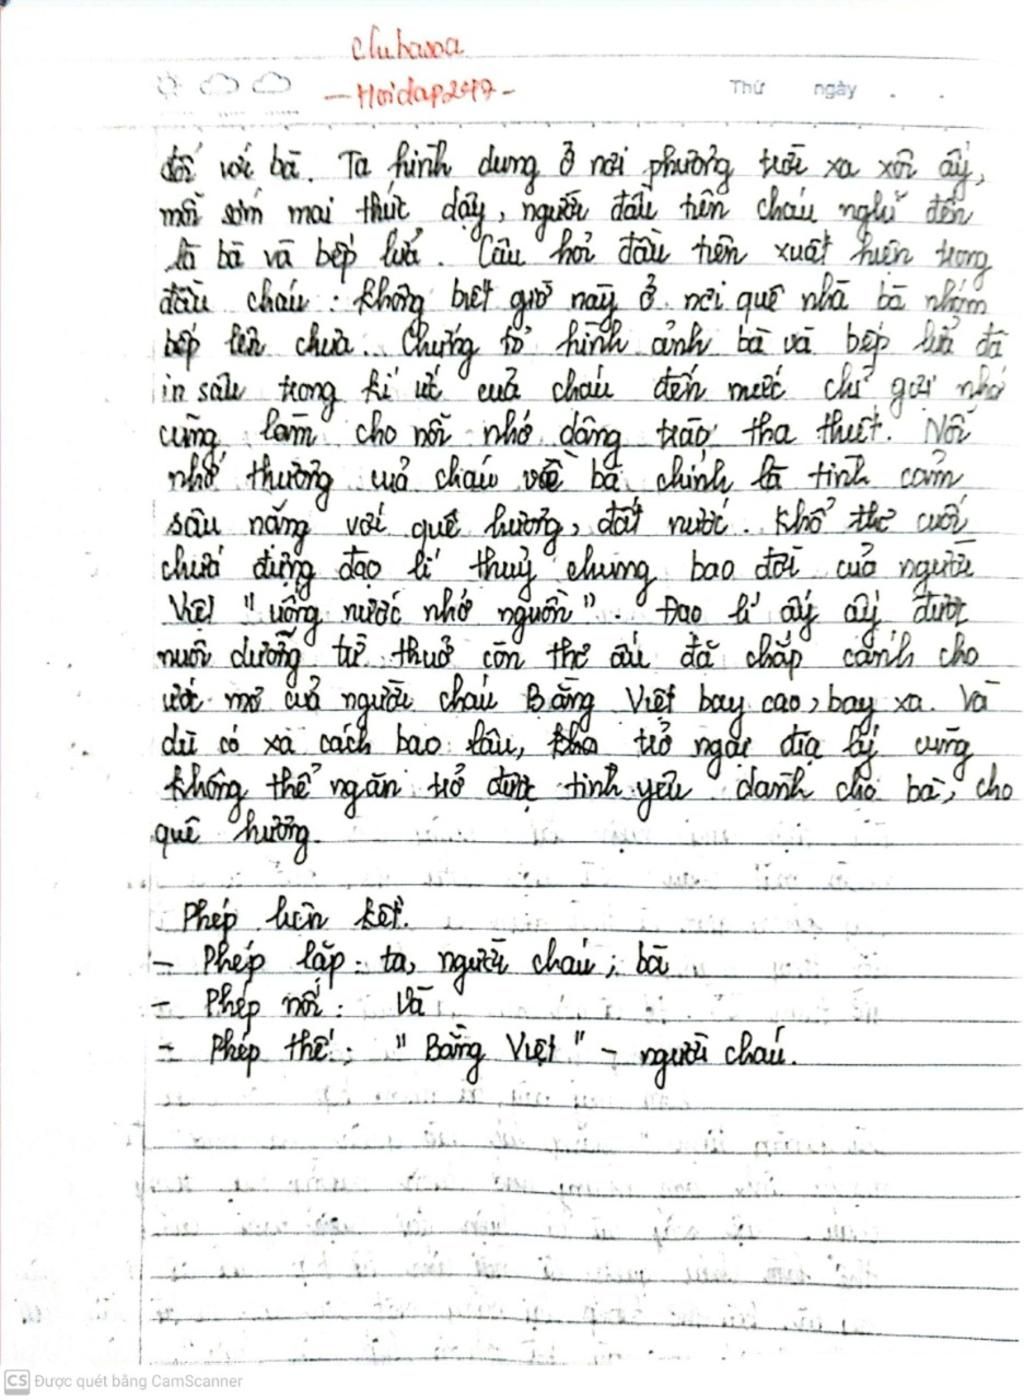 clubasoa
- Hoidap247 -
Thứ ngày . .
đối với bà. Ta hình dung ở nơi phương trời xa xôi ấy,
mỗi sớm mai thức dậy, người đầu tiên cháu nghĩ đến
là bà và bếp lửa. Câu hỏi đầu tiên xuất hiện trong
đầu cháu: không biết giờ này ở nơi quê nhà bà nhóm
bếp lên chưa... Chứng tỏ hình ảnh bà và bếp lửa đã
in sâu trong kí ức của cháu đến mức chỉ gợi nhớ
cũng làm cho nỗi nhớ dâng trào, tha thiết. Nỗi
nhớ thương của cháu về bà chính là tình cảm
sâu nặng với quê hương, đất nước. Khổ thơ cuối
chứa đựng đạo lí thuỷ chung bao đời của người
Việt "uống nước nhớ nguồn". Đạo lí ấy ấy được
nuôi dưỡng từ thuở còn thơ ấu đã chắp cánh cho
ước mơ của người cháu Bằng Việt bay cao, bay xa. Và
dù có xa cách bao lâu, trở ngại địa lý cũng
không thể ngăn trở được tình yêu dành cho bà, cho
quê hương.
Phép liên kết.
- Phép lặp: ta, người cháu; bà
- Phép nối: Và
- Phép thế: "Bằng Việt" - người cháu.
CS Được quét bằng CamScanner